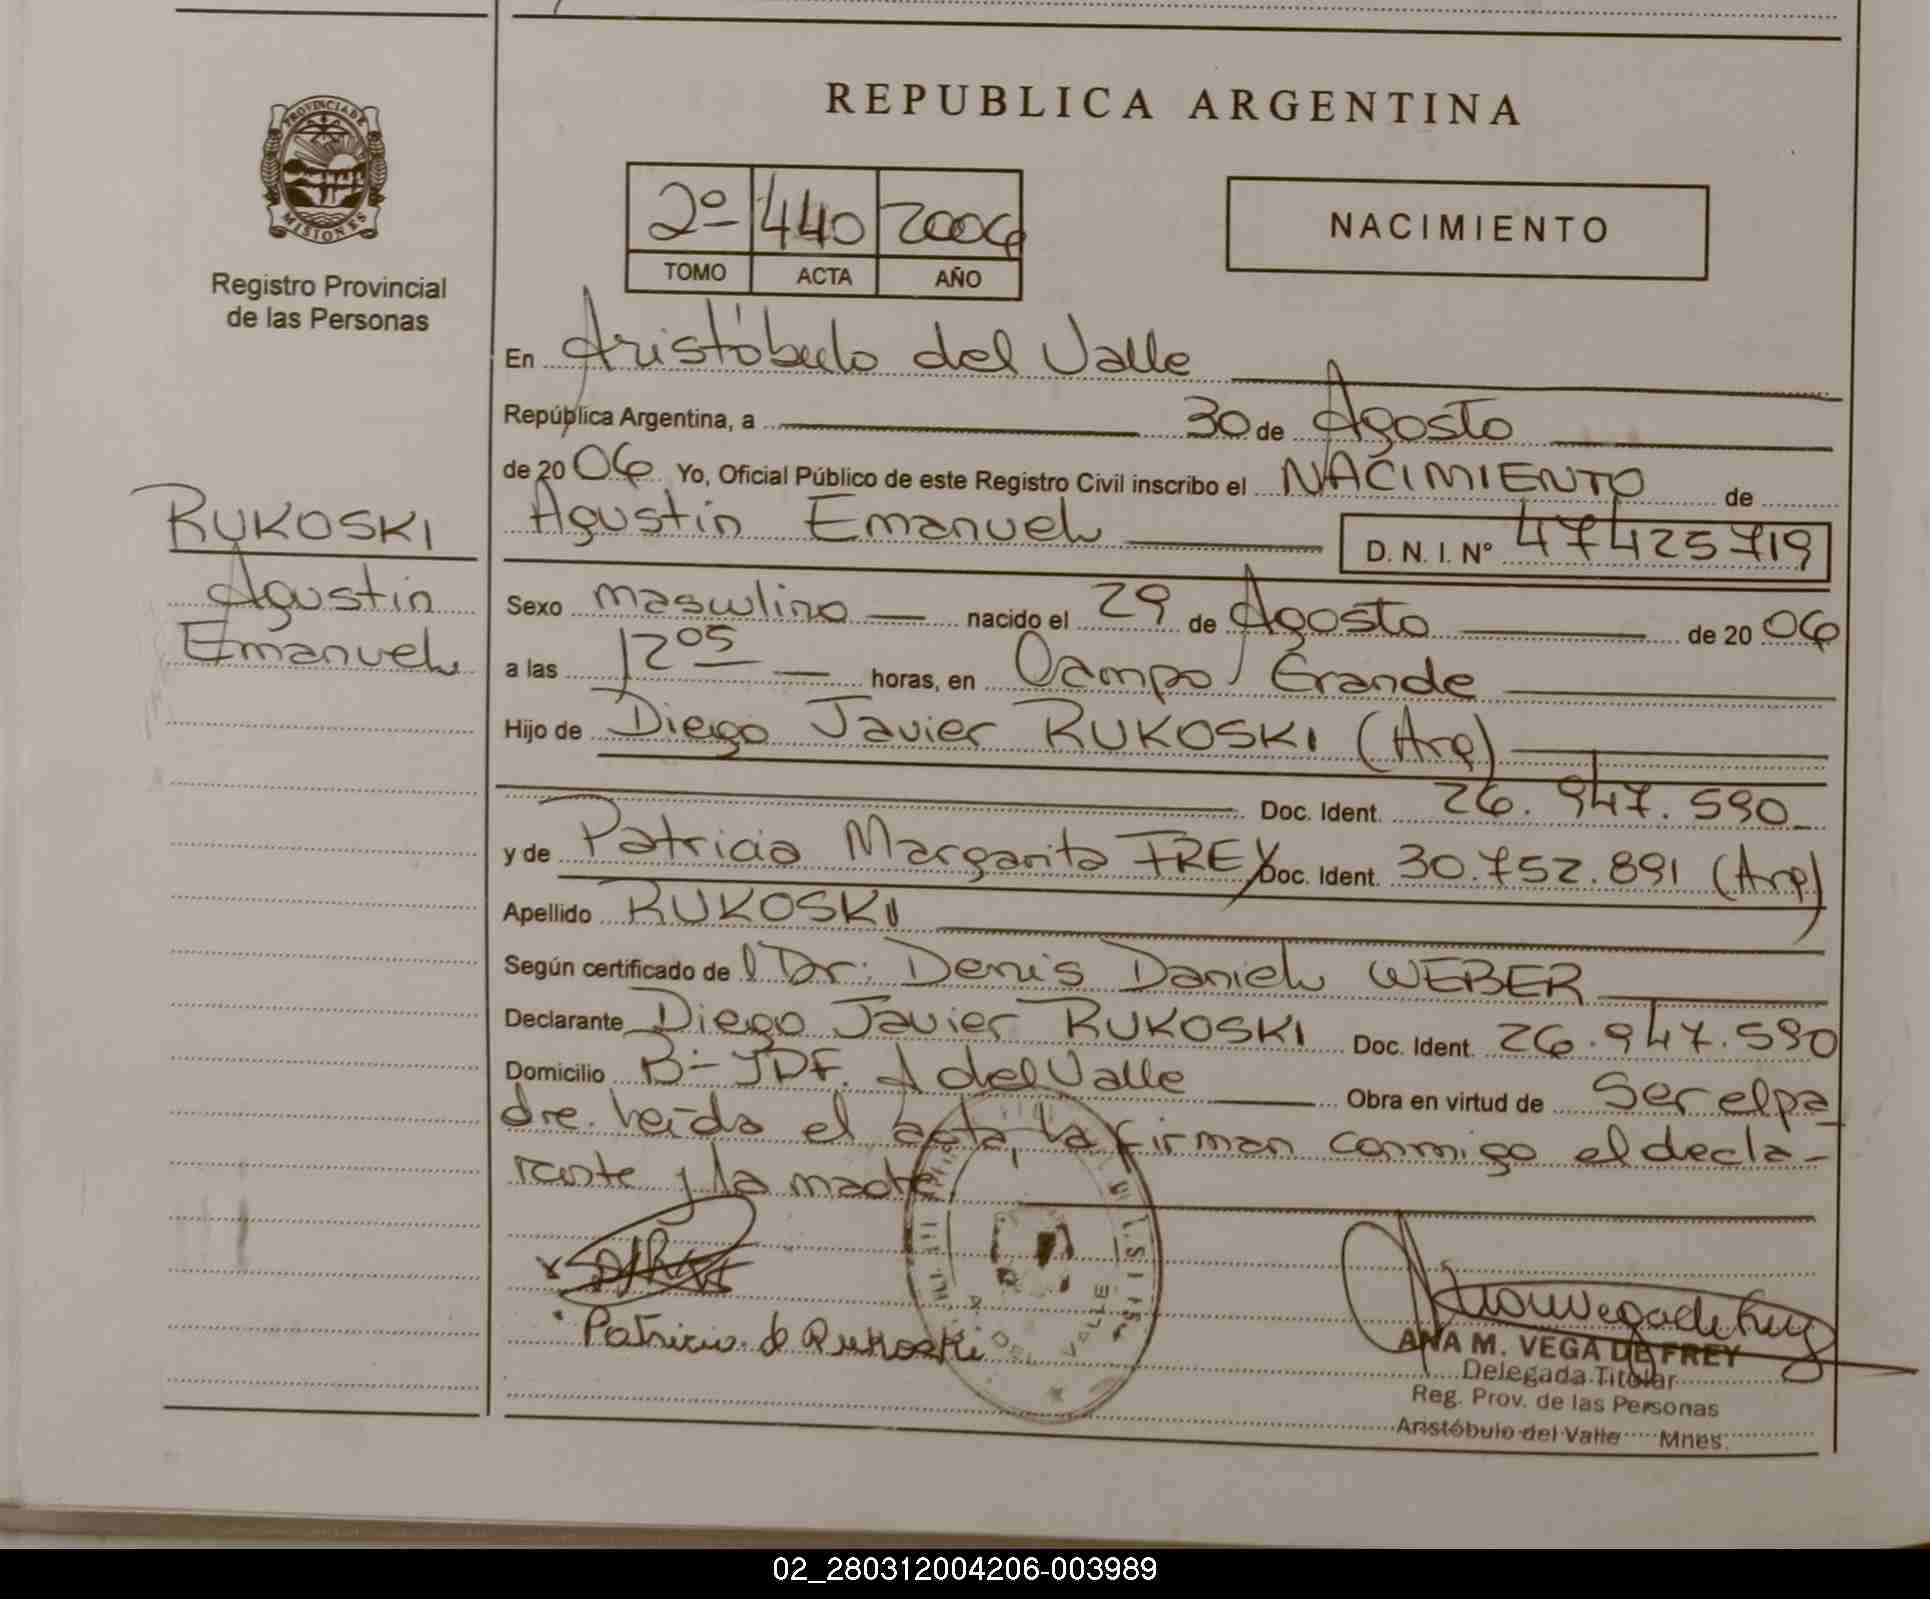 REPUBLICA ARGENTINA
PROVINCIA DE
MISIONES
Registro Provincial
de las Personas
2º 440 2006
TOMO ACTA AÑO
NACIMIENTO
En Aristóbulo del Valle
República Argentina, a 30 de Agosto
de 2006 Yo, Oficial Público de este Registro Civil inscribo el NACIMIENTO de
RUKOSKI
Agustin
Emanuel
Agustin Emanuel D. N. I. Nº 47425719
Sexo masculino nacido el 29 de Agosto de 2006
a las 1205 horas, en Campo Grande
Hijo de Diego Javier RUKOSKI (Arg)
Doc. Ident. 26.947.590
y de Patricia Margarita FREY Doc. Ident. 30.752.891 (Arg)
Apellido RUKOSKI
Según certificado del Dr. Denis Daniel WEBER
Declarante Diego Javier RUKOSKI Doc. Ident. 26.947.590
Domicilio Bº JDF. A del Valle Obra en virtud de ser el pa
dre. Leída el acta, la firman conmigo el decla-
rante y la madre.
Patricia. d Rukoski
A. DEL VALLE
ANA M. VEGA DE FREY
Delegada Titular
Reg. Prov. de las Personas
Aristóbulo del Valle Mnes.
02_280312004206-003989